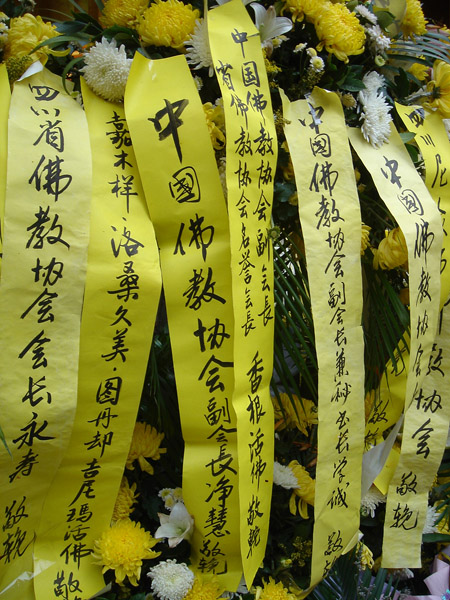 四川省佛教协会会长永寿 敬輓
嘉木样·洛桑久美·图丹却吉尼玛活佛 敬
中国佛教协会副会长净慧 敬輓
中国佛教协会副会长
省佛教协会名誉会长 香根活佛 敬輓
中国佛教协会副会长兼秘书长学诚 敬輓
中国佛教协会 敬輓
四川尼众